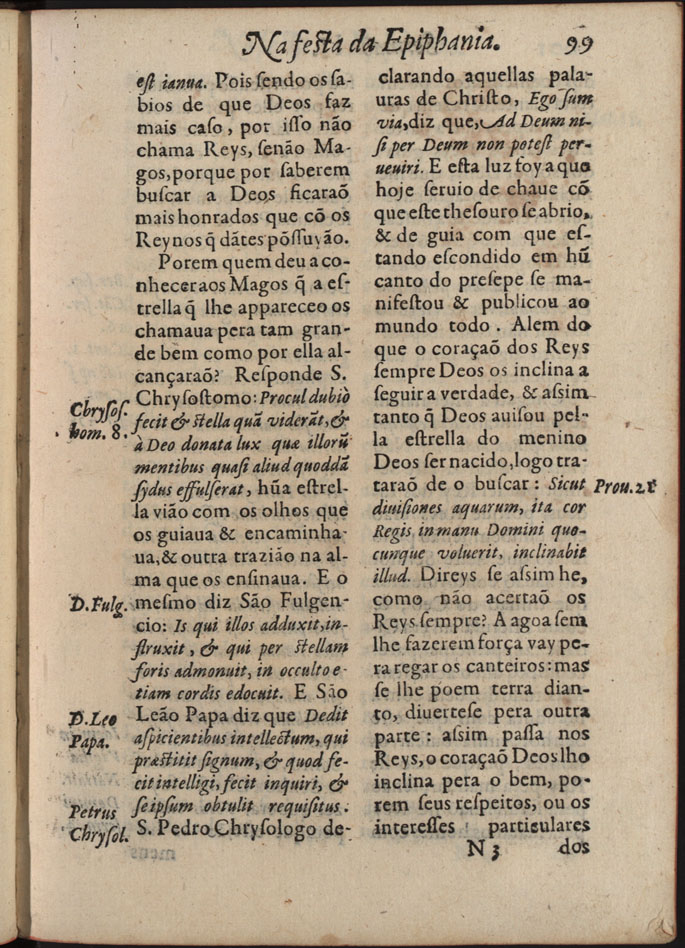 Na festa da Epiphania. 99
est ianua. Pois ſendo os ſa-
bios de que Deos faz
mais caſo, por iſſo não
chama Reys, ſenão Ma-
gos, porque por ſaberem
buſcar a Deos ficaraõ
mais honrados que cõ os
Reynos q̃ dãtes põſſuyão.
Porem quem deu a co-
nhecer aos Magos q̃ a eſ-
trella q̃ lhe appareceo os
chamaua pera tam gran-
de bem como por ella al-
cançaraõ? Reſponde S.
Chryſoſtomo: Procul dubiò
fecit & ſtella quã viderãt, &
à Deo donata lux quæ illorũ
mentibus quaſi aliud quoddã
ſydus effulſerat, hũa eſtrel-
la vião com os olhos que
os guiaua & encaminha-
ua, & outra trazião na al-
ma que os enſinaua. E o
meſmo diz São Fulgen-
cio: Is qui illos adduxit, in-
ſtruxit, & qui per ſtellam
foris admonuit, in occulto e-
tiam cordis edocuit. E São
Leão Papa diz que Dedit
aſpicientibus intellectum, qui
præſtitit ſignum, & quod fe-
cit intelligi, fecit inquiri, &
ſe ipſum obtulit requiſitus.
S. Pedro Chryſologo de-
Chryſoſ.
hom. 8.
D. Fulg.
D. Leo
Papa.
Petrus
Chryſol.
clarando aquellas pala-
uras de Chriſto, Ego ſum
via, diz que, Ad Deum ni-
ſi per Deum non poteſt per-
ueuiri. E eſta luz foy a que
hoje ſeruio de chaue cõ
que eſte theſouro ſe abrio,
& de guia com que eſ-
tando eſcondido em hũ
canto do preſepe ſe ma-
nifeſtou & publicou ao
mundo todo. Alem do
que o coraçaõ dos Reys
ſempre Deos os inclina a
ſeguir a verdade, & aſsim
tanto q̃ Deos auiſou pel-
la eſtrella do menino
Deos ſer nacido, logo tra-
taraõ de o buſcar: Sicut
diuiſiones aquarum, ita cor
Regis in manu Domini quo-
cunque voluerit, inclinabit
illud. Direys ſe aſsim he,
como não acertaõ os
Reys ſempre? A agoa ſem
lhe fazerem força vay pe-
ra regar os canteiros: mas
ſe lhe poem terra dian-
to, diuerteſe pera outra
parte: aſsim paſſa nos
Reys, o coraçaõ Deos lho
inclina pera o bem, po-
rem ſeus reſpeitos, ou os
intereſſes particulares
Prou. 21
N 3 dos